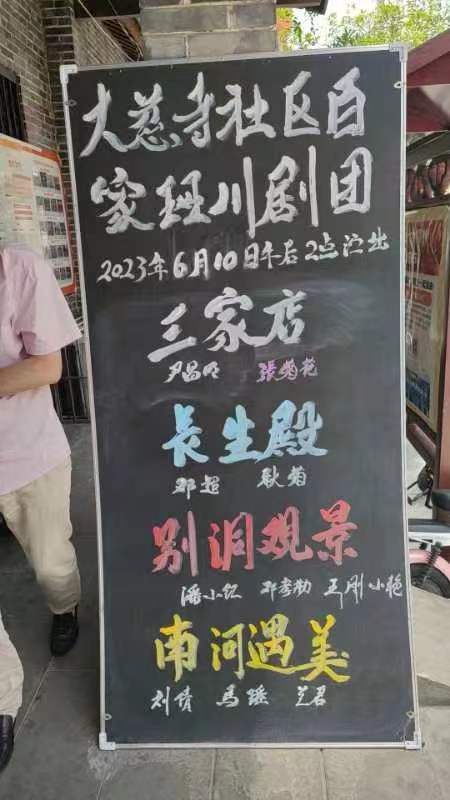 大慈寺社区百
家班川剧团
2023年6月10日午后2点演出
三家店
尹昌明 張菊花
長生殿
邓超 耿菊
别洞观景
潘小红 邓孝勤 王刚 小艳
南河遇美
刘倩 马瑶 芝君